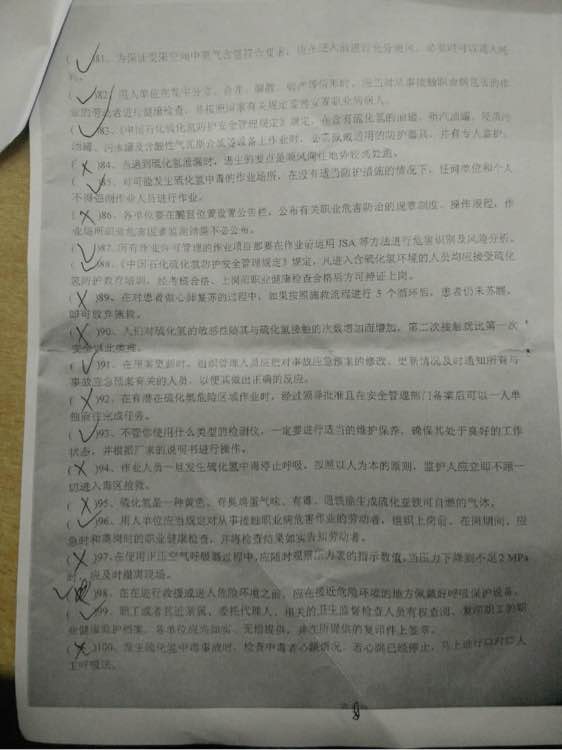 ( √ )81、为保证受限空间中氧气含量符合要求，应在进入前进行充分通风，必要时可以通入纯
( √ )82、用人单位在集中分立、合并、解散、破产等情形时，应当对从事接触职业病危害的作
业的劳动者进行健康检查，并按照国家有关规定妥善安置职业病病人。
( √ )83、《中国石化硫化氢防护安全管理规定》规定，在含有硫化氢的油罐、粗汽油罐、轻质污
油罐、污水罐及含酸性气瓦斯介质等设备上作业时，必需佩戴适用的防护器具，并有专人监护。
( × )84、当遇到硫化氢泄漏时，逃生的要点是顺风向往地势较低处逃。
( √ )85、对可能发生硫化氢中毒的作业场所，在没有适当防护措施的情况下，任何单位和个人
不得强制作业人员进行作业。
( × )86、各单位要在醒目位置设置公告栏，公布有关职业危害防治的规章制度、操作规程，作
业场所职业危害因素监测结果不必公布。
( √ )87、所有作业许可管理的作业项目都要在作业前运用 JSA 等方法进行危害识别及风险分析。
( √ )88、《中国石化硫化氢防护安全管理规定》规定，凡进入含硫化氢环境的人员均应接受硫化
氢防护教育培训，经考核合格、上岗前职业健康检查合格后方可持证上岗。
( × )89、在对患者做心肺复苏的过程中，如果按照施救流程进行 5 个循环后，患者仍未苏醒，
即可放弃施救。
( × )90、人们对硫化氢的敏感性随其与硫化氢接触的次数增加而增加，第二次接触就比第一次
安全以此类推。
( √ )91、在预案更新时，组织管理人员应把对事故应急预案的修改、更新情况及时通知所有与
事故应急预案有关的人员，以便其做出正确的反应。
( × )92、在有潜在硫化氢危险区域作业时，经过领导批准且在安全管理部门备案后可以一人单
独前往完成任务。
( √ )93、不管你使用什么类型的检测仪，一定要进行适当的维护保养，确保其处于良好的工作
状态，并根据厂家的说明书进行操作。
( × )94、作业人员一旦发生硫化氢中毒停止呼吸，按照以人为本的原则，监护人应立即不顾一
切进入毒区抢救。
( × )95、硫化氢是一种黄色、有臭鸡蛋气味、有毒、遇铁能生成硫化亚铁可自燃的气体。
( √ )96、用人单位应当规定对从事接触职业病危害作业的劳动者，组织上岗前、在岗期间、应
急时和离岗时的职业健康检查，并将检查结果如实告知劳动者。
( × )97、在使用正压空气呼吸器过程中，应随时观察压力表的指示数值，当压力下降到不足 2 MPa
时，应及时撤离现场。
( √ )98、在在进行救援或进入危险环境之前，应在接近危险环境的地方佩戴好呼吸保护设备。
( √ )99、职工或者其近亲属、委托代理人、相关的卫生监督检查人员有权查阅、复印职工的职
业健康监护档案，各单位应当如实、无偿提供，并在所提供的复印件上签章。
( × )100、发生硫化氢中毒事故时，检查中毒者心跳情况，若心跳已经停止，马上进行口对口人
工呼吸法。
8